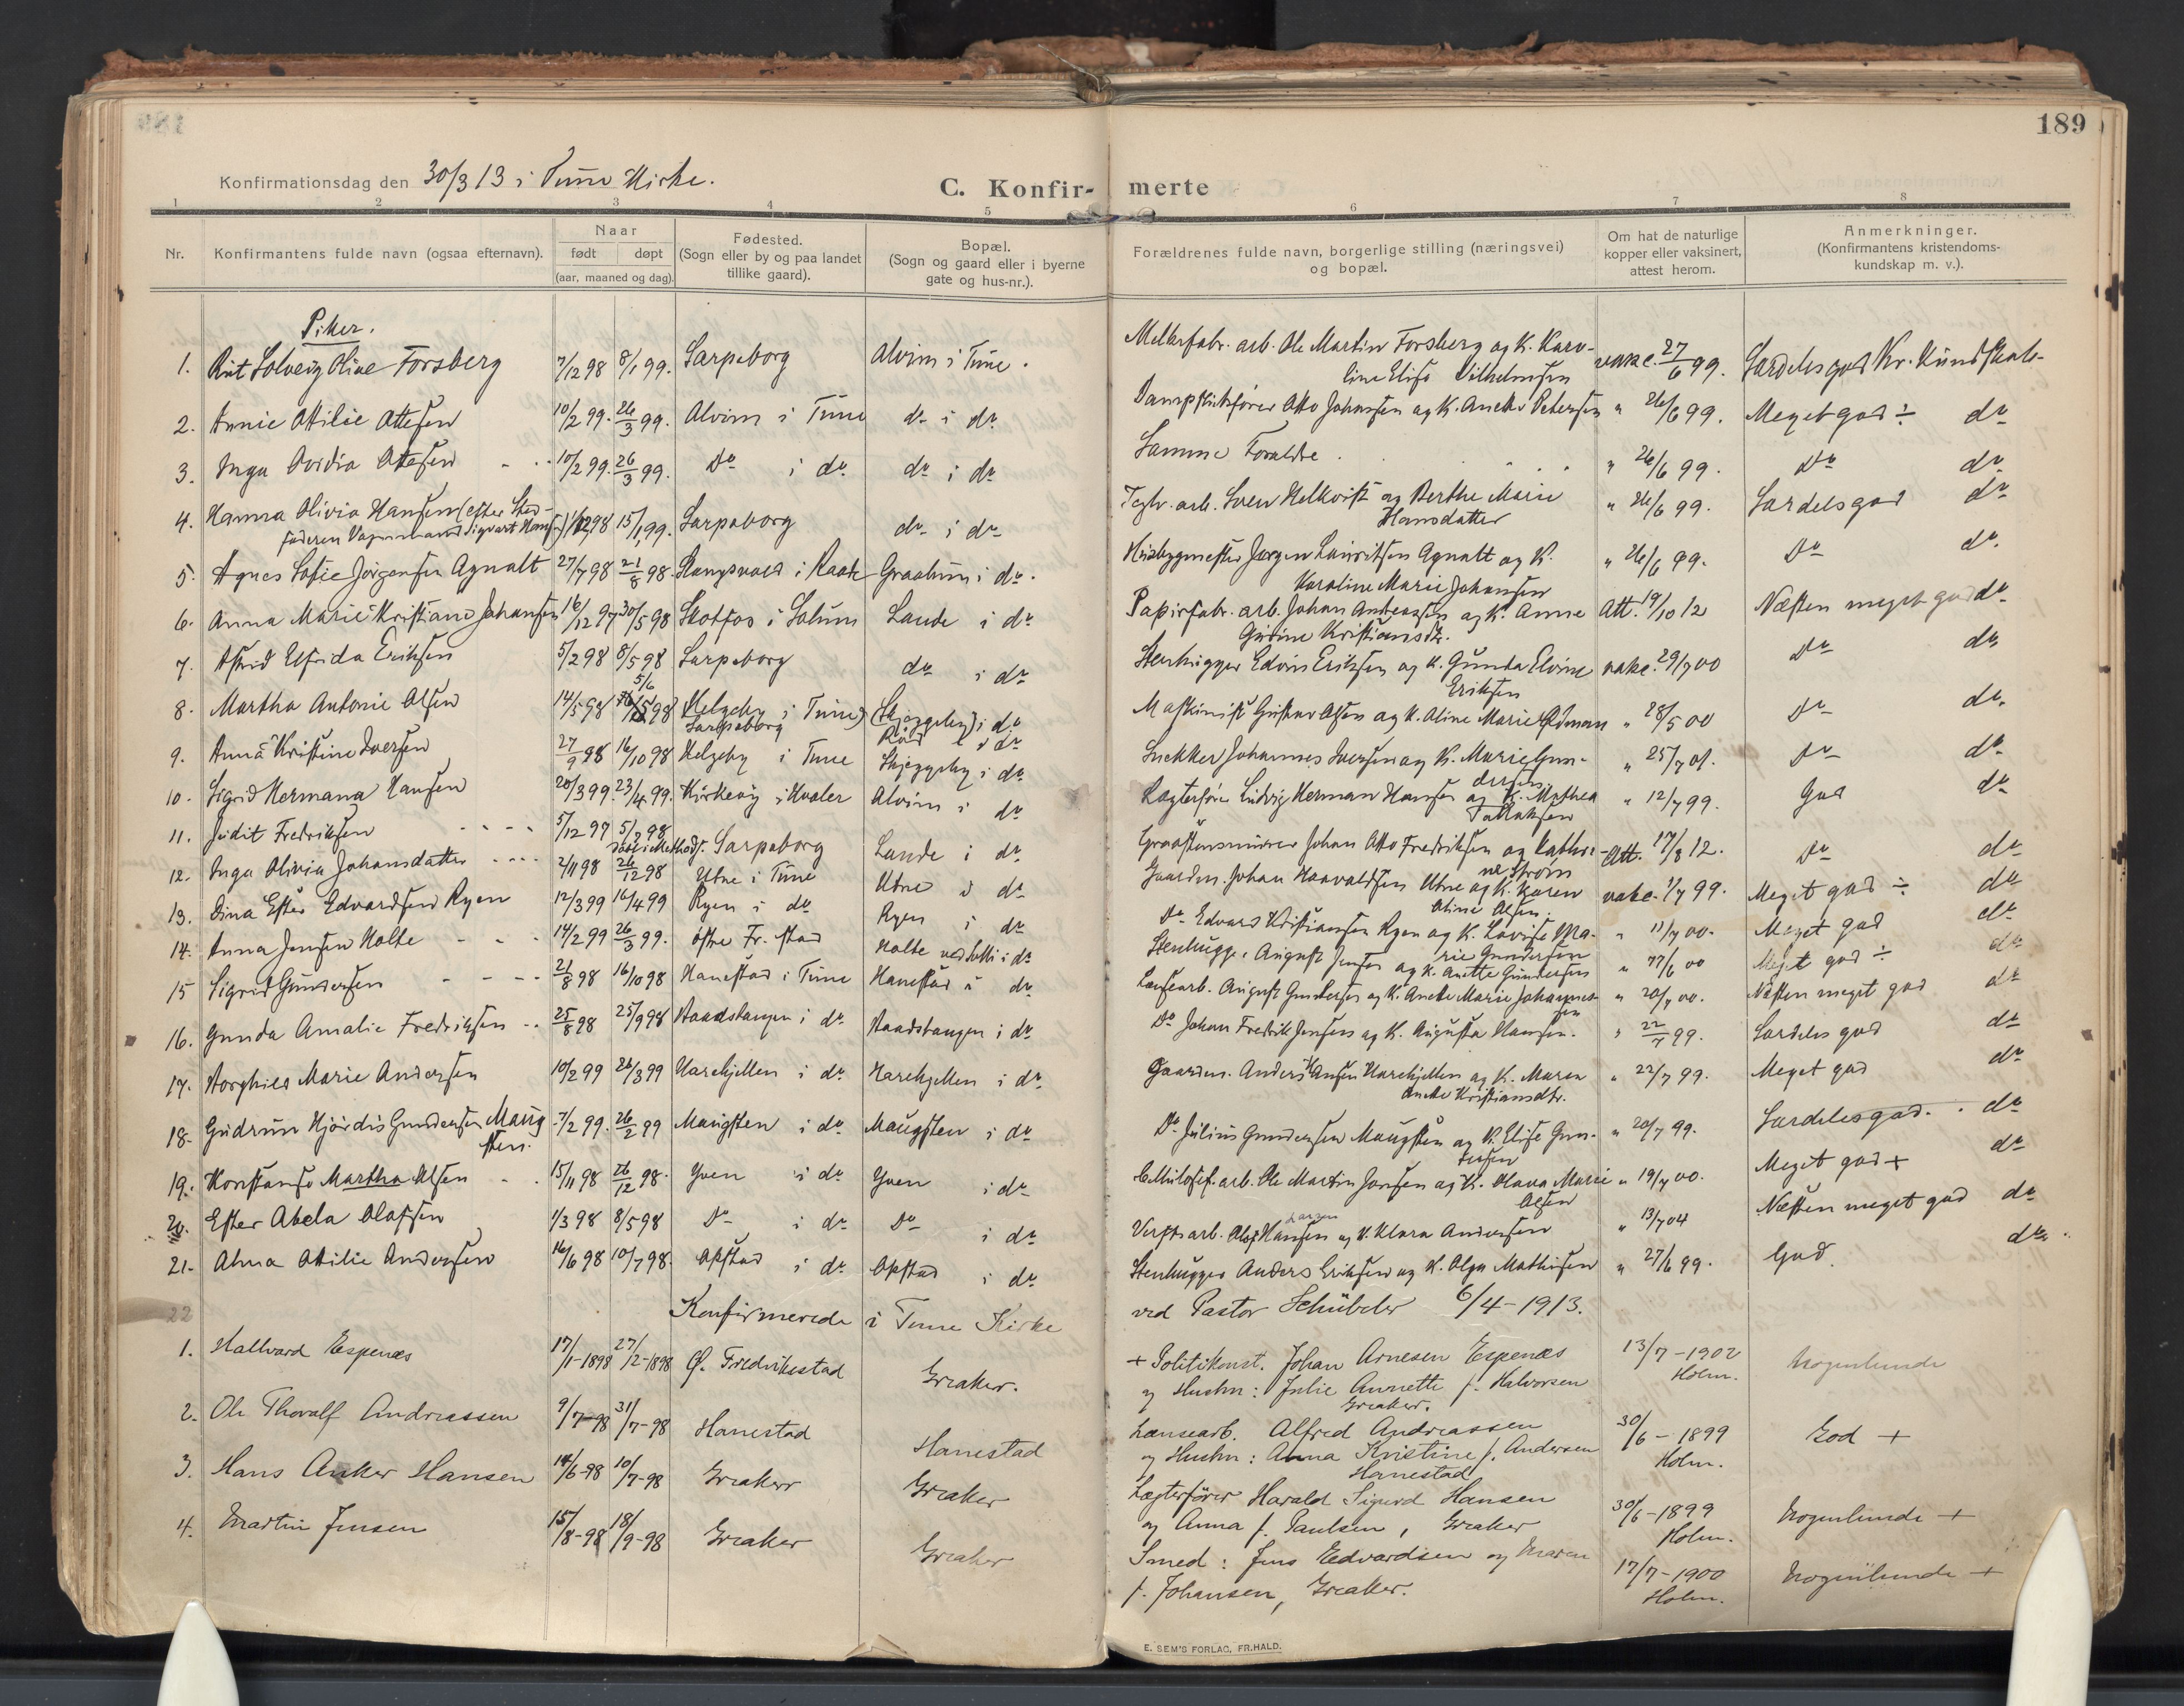 189
Konfirmationsdag den 30/3 13 i Tune Kirke.
C. Konfir- merte
1 2 3 4 5 6 7 8
Nr. Konfirmantens fulde navn (ogsaa efternavn). Naar født døpt (aar, maaned og dag). Fødested. (Sogn eller by og paa landet tillike gaard). Bopæl. (Sogn og gaard eller i byerne gate og hus-nr.). Forældrenes fulde navn, borgerlige stilling (næringsvei) og bopæl. Om hat de naturlige kopper eller vaksinert, attest herom. Anmerkninger. (Konfirmantens kristendoms- kundskap m. v.).
Piker.
1. Rut Solveig Olive Forsberg 7/12 98 8/1 99. Sarpsborg Alvim i Tune. arb. Ole Martin Forsberg og K. Karo- vakc. 27/6 99. Særdeles god Kr. Kundskab
line Elise Vilhelmsen
2. Annie Otilie Ottesen 10/2 99. 26/3 99. Alvim i Tune do i do Otto Johansen og K. Anette Petersen " 26/6 99. Meget god ÷ do
3. Inga Ovidia Ottesen 10/2 99. 26/3 99. Do i do do i do Samme Forældre " 26/6 99. Do do
4. Hanna Olivia Hansen (efter Sted- 98 15/1 99. Sarpsborg do i do Teglv. arb. Soren Helkvist og Berthe Marie " 26/6 99. Særdeles god do
faderen Sigvart Hansen) Hansdatter
5. Agnes Sofie Jørgensen Agnalt 27/7 98 21/8 98. i Raade Graalum i do. Husbygmester Jørgen Lauritsen Agnalt og K. " 26/6 99. Do do.
Karoline Marie Johansen
6. Anna Marie Kristiane Johansen 16/12 97 30/5 98 Skotfos i Solum Lande i do Papirfabr. arb. Johan Andreassen og K. Anne Att. 19/10 12 Næsten meget god do
Gurine Kristiansdr.
7. Astrid Elfrida Eriksen 5/2 98 8/5 98 Sarpsborg do i do Stenhugger Edvin Eriksen og K. Gunda Elvine vakc. 29/7 00 Do do
Eriksen
8. Martha Antonie Olsen 14/5 98 5/6 98 (Helgeby i Tune) Sarpsborg (Skjeggeby) i do Maskinist Gustav Olsen og K. Oline Marie Ødman " 28/5 00 Do do.
9. Anna Kristine Iversen 27/9 98 16/10 98 Helgeby i Tune Skjeggeby i do Snekker Johannes Iversen og K. Marie Gun- " 25/7 01. Do do.
dersen
10. Sigrid Hermana Hansen 20/3 99. 23/4 99. Kirkeøy i Hvaler Alvim i do Lægterfører Ludvig Herman Hansen og K. Mathea " 12/7 99. God do
11. Judit Fredriksen 5/12 97 5/2 98 Sarpsborg Lande i do Graastensmurer Johan Otto Fredriksen og Kathr- Att. 17/3 12. Do do
ne Strøm
12. Inga Olivia Johansdatter 2/11 98 26/12 98 Utne i Tune Utne i do Gaardm. Johan Haavaldsen Utne og K. Karen vakc. 1/7 99. Meget god ÷ do
Oline Olsen
13. Dina Ester Edvardsen Ryen 12/3 99 16/4 99 Ryen i do Ryen i do Do Edvard Kristiansen Ryen og K. Lovise Ma- " 11/7 00. Meget god do
rie Gundersen
14. Anna Jensen Holte 14/2 99 26/3 99. Østre Fr. stad Holte i do Stenhugger August Jensen og K. Anette Gundersen Meget god ÷ do
15 Sigrid Gundersen 21/8 98 16/10 98 Hanestad i Tune Hanestad i do Lænsearb. August Gundersen og K. Anette Marie Johannes- " 20/7 00. Næsten meget god do
sen
16. Gunda Amalie Fredriksen 25/8 98 25/9 98 i do i do Do Johan Fredrik Jensen og K. Augusta Hansen. " 22/7 99. Særdeles god do
17. Borghild Marie Andersen 10/2 99 26/3 99 Harekjellen i do Harekjellen i do. Gaardm. Anders Hansen Harekjellen og K. Maren " 22/7 99. Meget god do
Anette Kristiansdtr.
18. Gudrun Hjørdis Gundersen Maug 7/2 99. 26/2 99 Maugsten i do Maugsten i do Do Julius Gundersen Maugsten og K. Elise Gun- " 20/7 99. Særdeles god. do
sten. dersen
19. Konstanse Martha Olsen 15/11 98 26/12 98. Yven i do Yven i do Cellulosef. arb. Ole Martin Jonsen og K. Olava Marie " 19/7 00. Meget god + do
Olsen
20. Ester Abela Olafsen 1/3 98 8/5 98 Do i do Do i do Verftsarb. Olaf Hansen Larsen og K. Klara Andersen " 13/7 04 Næsten meget god do
21. Alma Otilie Andersen 16/6 98 10/7 98. Opstad i do Opstad i do Stenhugger Anders Eriksen og K. Olga Mathisen " 27/6 99. God. do
22 Konfirmerede i Tune Kirke ved Pastor Schübeler 6/4-1913.
1. Hallvard Espenæs 17/1-1898 27/12-1898 Ø. Fredrikstad Greaker. + Politikonst. Johan Arnesen Espenæs 13/7-1902 Nogenlunde
og Hustru: Julie Annette f. Halvorsen Holm.
Greaker.
2. Ole Thoralf Andreassen 9/7-98 31/7-98 Hanestad Hanestad Lænsearb. Alfred Andreassen 30/6-1899 God +
og Hustru: Anna Kristine f. Andersen Holm.
Hanestad
3. Hans Anker Hansen 14/6-98 10/7-98 Greaker Greaker Lægterfører Harald Sigurd Hansen 30/6-1899 Nogenlunde +
og Anna f. Paulsen, Greaker Holm.
4. Martin Jensen 15/8-98 18/9-98 Greaker Greaker Smed: Jens Edvardsen og Maren 17/7-1900 Nogenlunde +
f. Johansen, Greaker. Holm.
E. SEM'S FORLAG, FR.HALD.